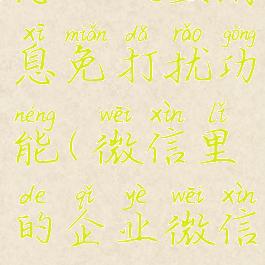 xī miǎn dǎ rǎo gōng
息免打扰功
néng wēi xìn lǐ
能(微信里
de qǐ yè wēi xìn
的企业微信